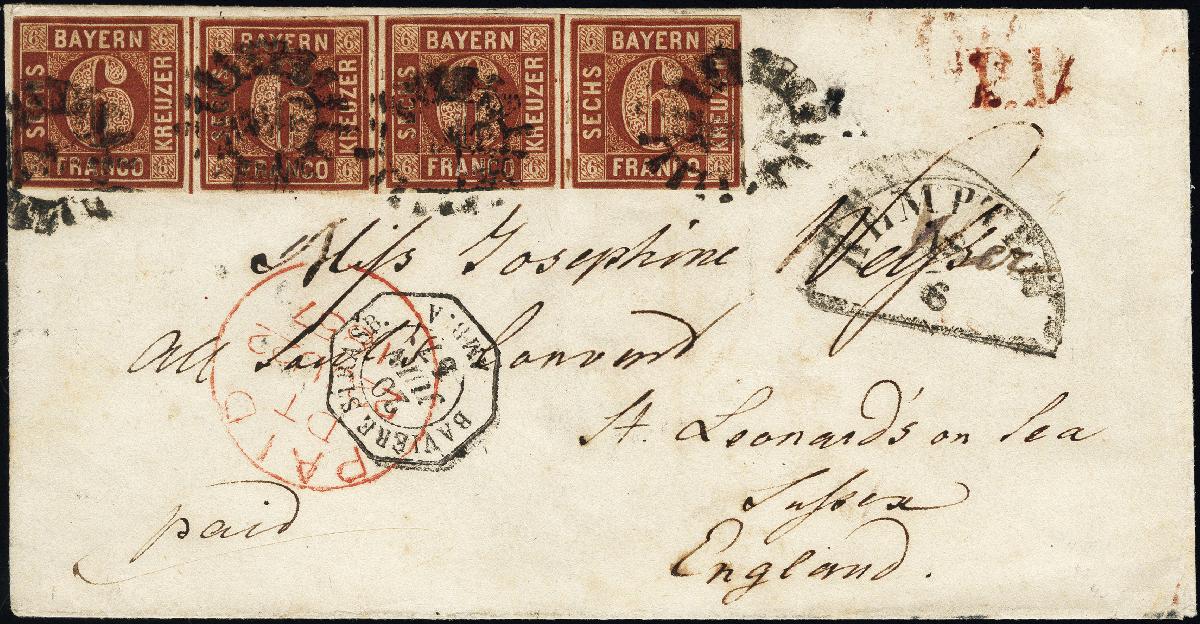 BAYERN BAYERN BAYERN BAYERN
6 6 6 6
SECHS SECHS SECHS SECHS
KREUZER KREUZER KREUZER KREUZER
FRANCO FRANCO FRANCO FRANCO
P.D.
KEMPTEN
6
Miss Josephine
All Souls Convent
St. Leonard's on Sea
Sussex
England.
paid
PAID
BAVIERE STRASB.
20 JUIN 57
AMB. A